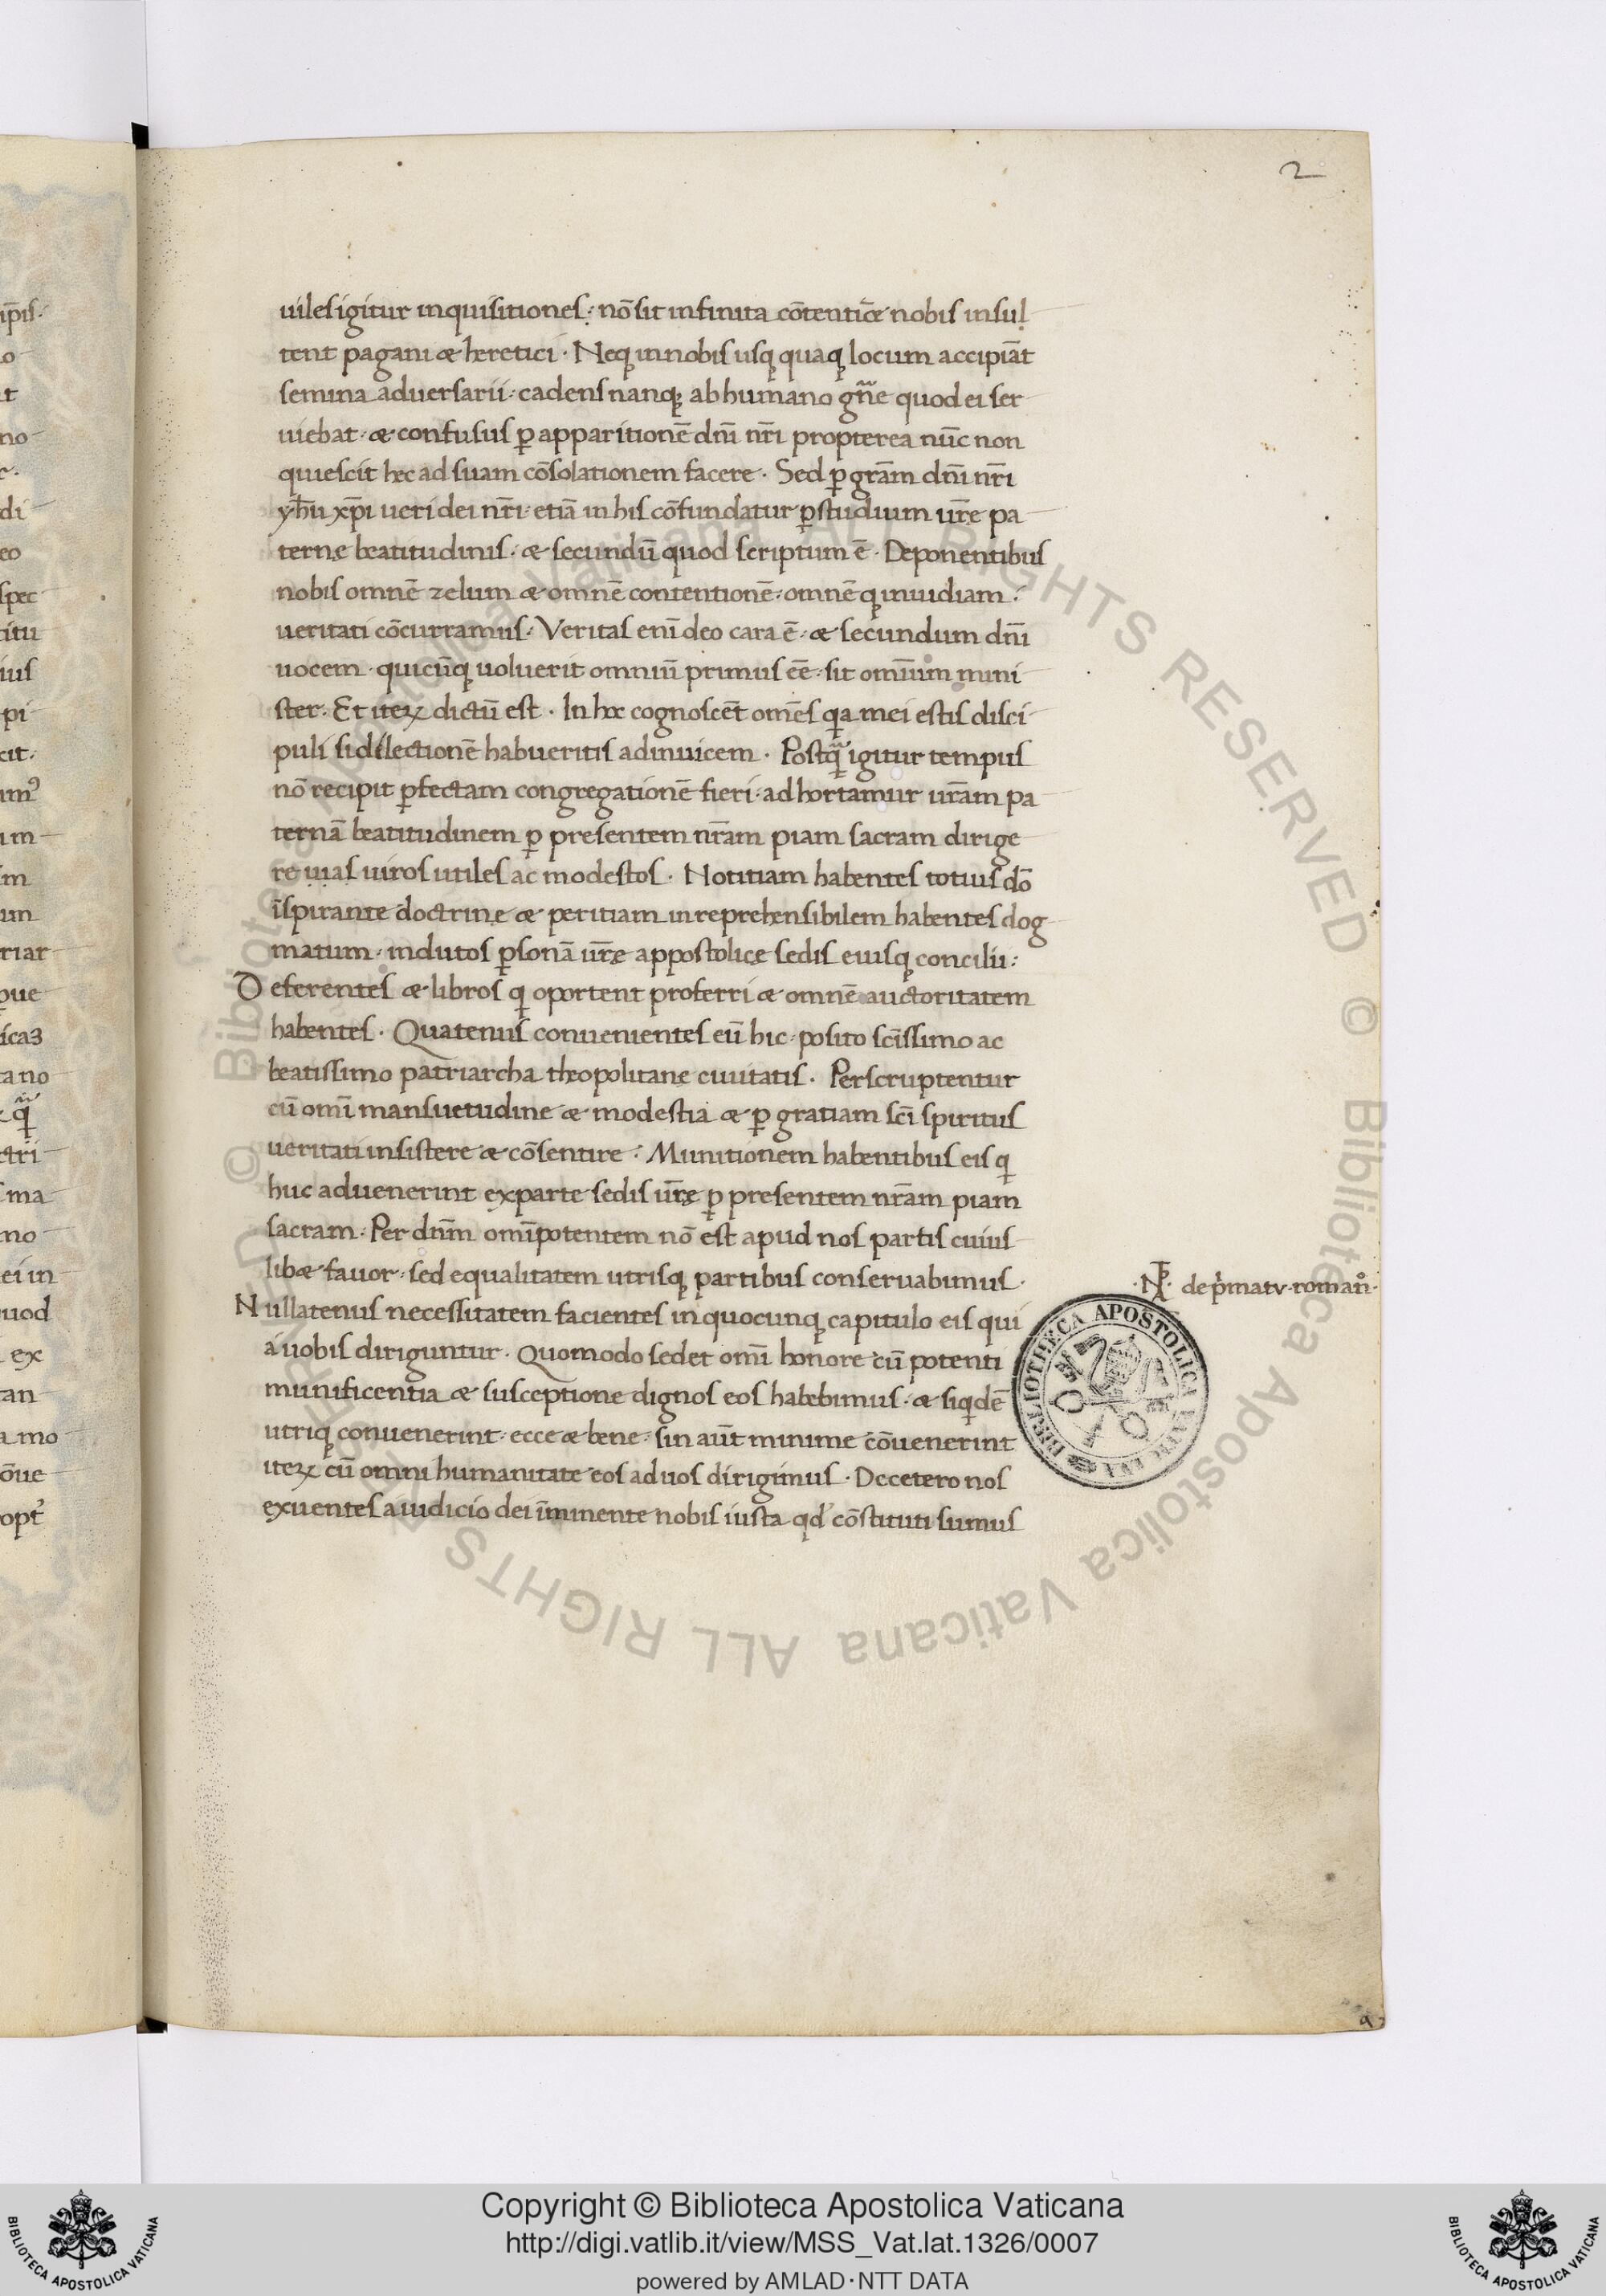 2
uiles igitur inquisitiones: nō sit infinita cōtentiōe nobis insul
tent pagani & heretici. Neq; in nobis usq; quaq; locum accipiāt
semina aduersarii: cadens nanq; ab humano gñe quod ei ser
uiebat. & confusus ꝑ apparitionē dñi nr̄i propterea nūc non
quiescit hec ad suam cōsolationem facere. Sed ꝑ gr̄am dñi nr̄i
yh̄u xp̄i ueri dei nr̄i. etiā in his cōfundatur ꝑ studium ur̄ę pa
ternę beatitudinis. & secundū quod scriptum ē. Deponentibus
nobis omnē zelum & omnē contentionē: omnēq; inuidiam:
ueritati cōcurramus: Veritas enī deo cara ē. & secundum dñi
uocem. quicūq; uoluerit omniū primus eē. sit omīum mini
ster. Et iteꝝ dictū est. In hoc cognoscēt omēs qa mei estis disci
puli si dilectionē habueritis adinuicem. Postq̃ igitur tempus
nō recipit ꝑfectam congregationē fieri: adhortamur ur̄am pa
ternā beatitudinem ꝑ presentem nr̄am piam sacram dirige
re uias uiros utiles ac modestos. Notitiam habentes totius dō
īspirante doctrinę & peritiam inreprehensibilem habentes dog
matum. indutos ꝑsonā ur̄ę appostolicę sedis eiusq; concilii:
Deferentes & libros qi oportent proferri & omnē auctoritatem
habentes. Quatenus conuenientes cū hic. posito sc̄issimo ac
beatissimo patriarcha theopolitane ciuitatis. Perscruptentur
cū omī mansuetudine & modestia & ꝑ gratiam sc̄i spiritus
ueritati insistere & cōsentire: Munitionem habentibus eis qi
huc aduenerint ex parte sedis ur̄ę ꝑ presentem nr̄am piam
sacram. Per dn̄m omīpotentem nō est apud nos partis cuius
lib& fauor. sed equalitatem utrisq; partibus conseruabimus.
Nullatenus necessitatem facientes in quocunq; capitulo eis qui
á uobis diriguntur. Quomodo sedet omī honore cū potenti
munificentia & susceptione dignos eos habebimus. & siqidē
utriq; conuenerint. ecce & bene. sin aūt minime cōuenerint
iteꝝ cū omni humanitate eos ad uos dirigimus. De cetero nos
exuentes á iudicio dei īminente nobis iusta qd' cōstituti sumus
.N. de p̄matv. roman̄.
BIBLIOTHECA APOSTOLICA VATICANA
ipīs.
t
no
di
eo
spec
titu
ius
pi
cit.
um
im
um
riar
que
icaз
tano
ctri
ma
no
ei in
uod
ex
tan
a mo
oūe
© Biblioteca Apostolica Vaticana ALL RIGHTS RESERVED © Biblioteca Apostolica Vaticana ALL RIGHTS RESERVED
Copyright © Biblioteca Apostolica Vaticana
http://digi.vatlib.it/view/MSS_Vat.lat.1326/0007
powered by AMLAD·NTT DATA
BIBLIOTECA APOSTOLICA VATICANA
BIBLIOTECA APOSTOLICA VATICANA